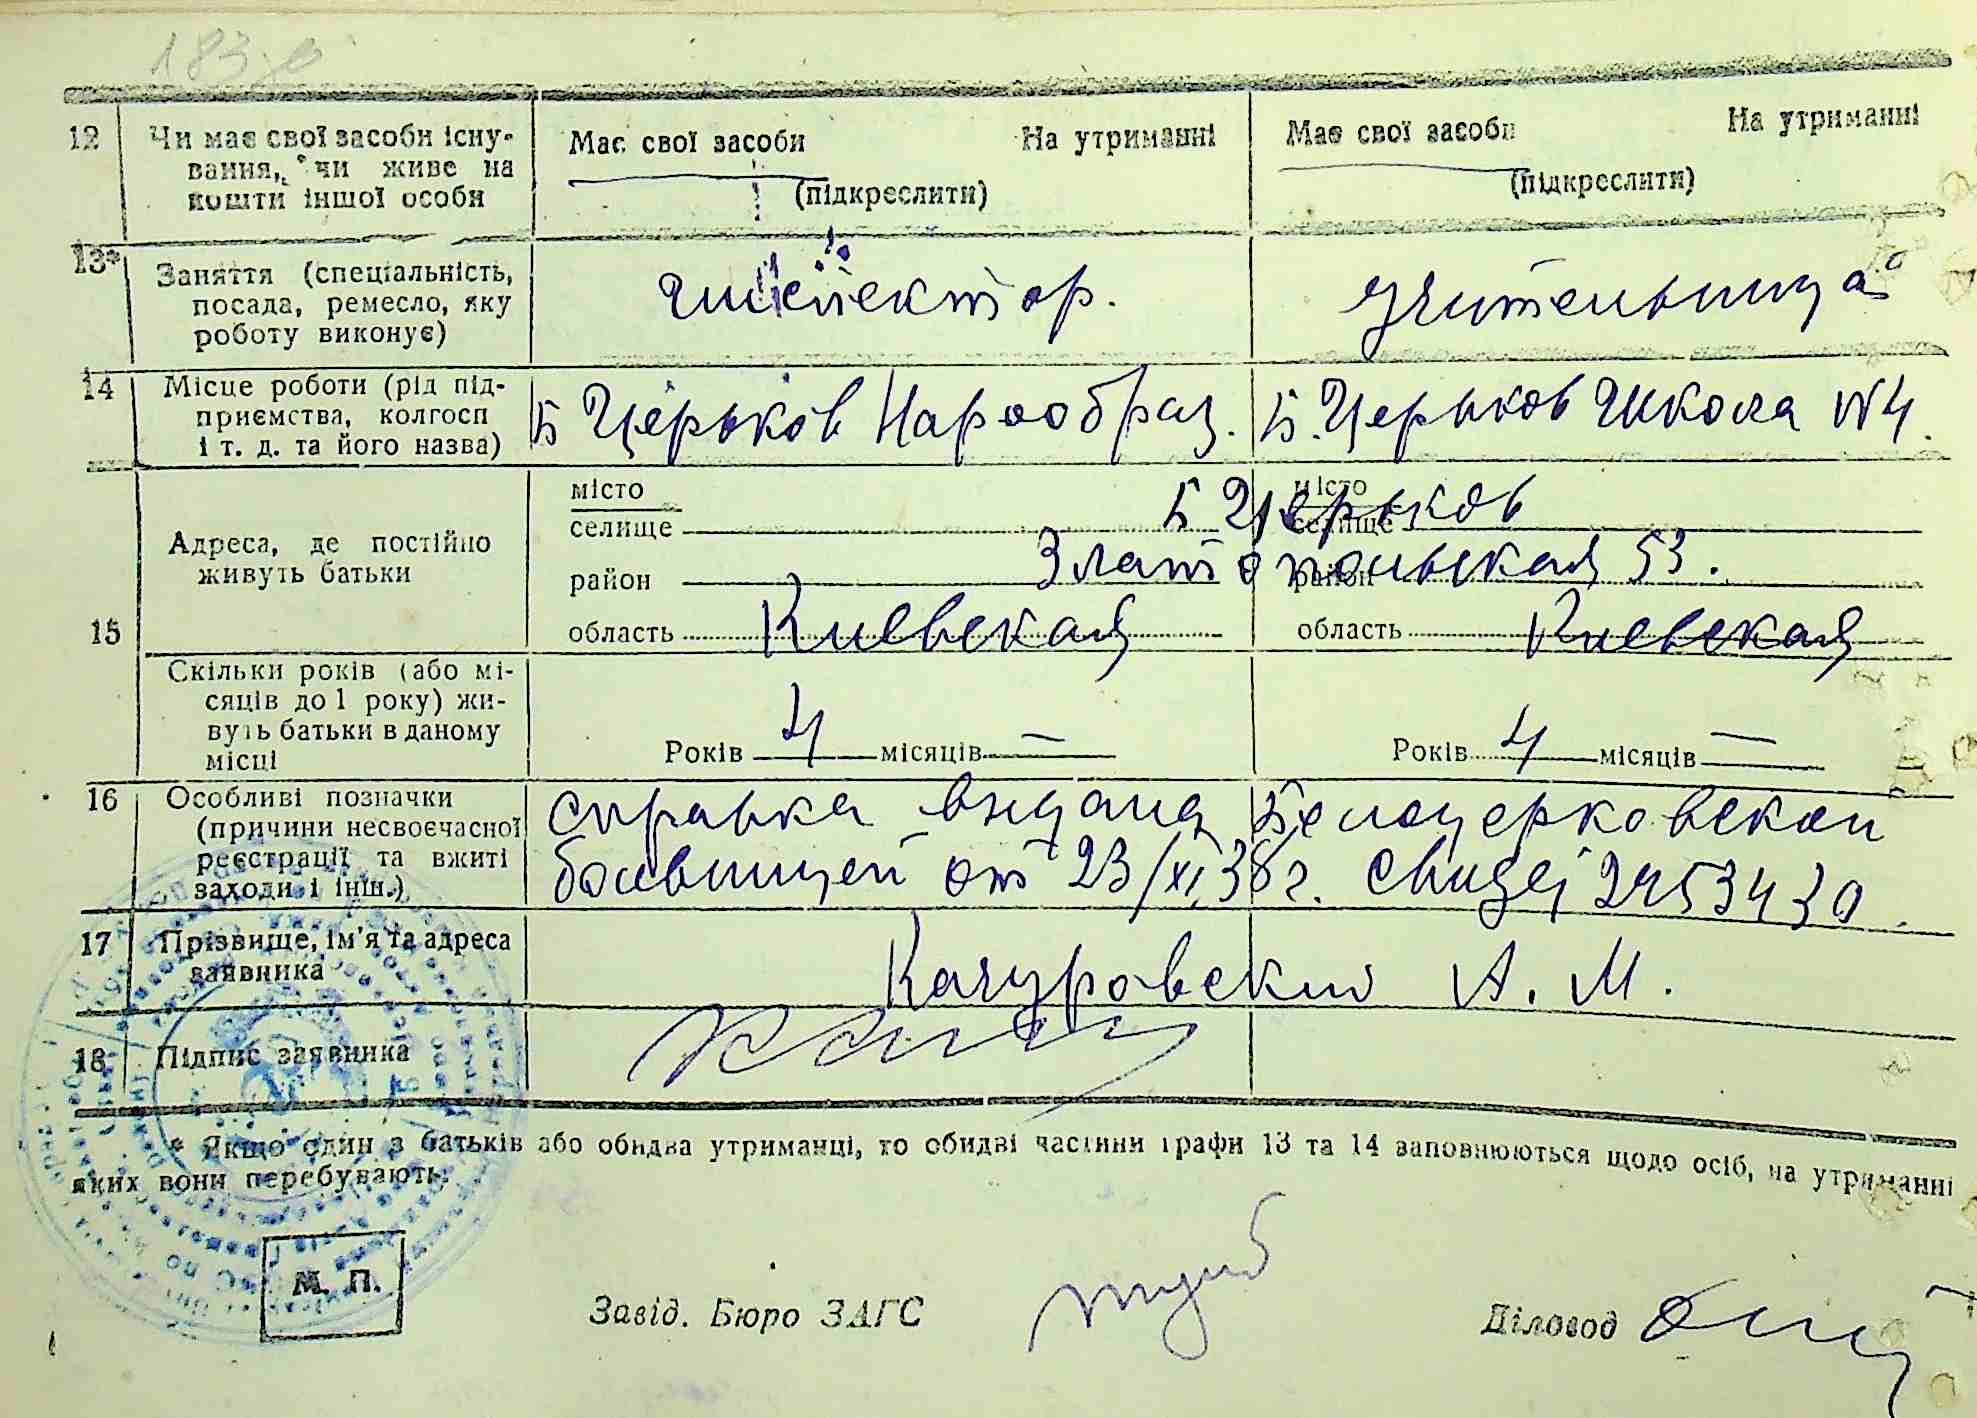 183
12 Чи має свої засоби існу- Має свої засоби На утриманні Має свої засоби На утриманні
вання, чи живе на
кошти іншої особи (підкреслити) (підкреслити)
13* Заняття (спеціальність,
посада, ремесло, яку Инспектор. Учительница
роботу виконує)
14 Місце роботи (рід під-
приємства, колгосп Б Церьков Нарообраз. Б. Церьков Школа №4.
і т. д. та його назва)
15 Адреса, де постійно
живуть батьки
місто місто
селище Б Церьков селище
район Златопольская 53. район
область Киевская область Киевская
Скільки років (або мі-
сяців до 1 року) жи-
вуть батьки в даному
місці Років 4 місяців — Років 4 місяців —
16 Особливі позначки справка выдана Белоцерковской
(причини несвоєчасної
реєстрації та вжиті больницей от 23/XI 38 г. 2453430.
заходи і інш.)
17 Прізвище, ім'я та адреса
заявника Качуровский А. М.
18 Підпис заявника
* Якщо один з батьків або обидва утриманці, то обидві частини графи 13 та 14 заповнюються щодо осіб, на утриманні
яких вони перебувають.
М. П.
Завід. Бюро ЗАГС Діловод